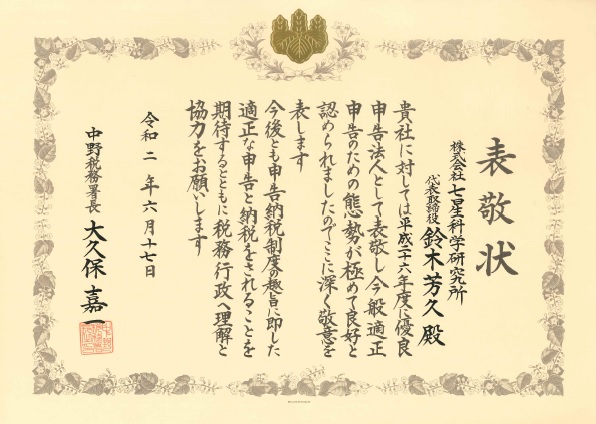 表敬状
株式会社 七星科学研究所
代表取締役 鈴木芳久 殿
貴社に対しては平成二十六年度に優良
申告法人として表敬し今般適正
申告のための態勢が極めて良好と
認められましたのでここに深く敬意を
表します
今後とも申告納税制度の趣旨に即した
適正な申告と納税をされることを
期待するとともに税務行政へ理解と
協力をお願いします
令和二年六月十七日
中野税務署長 大久保嘉一